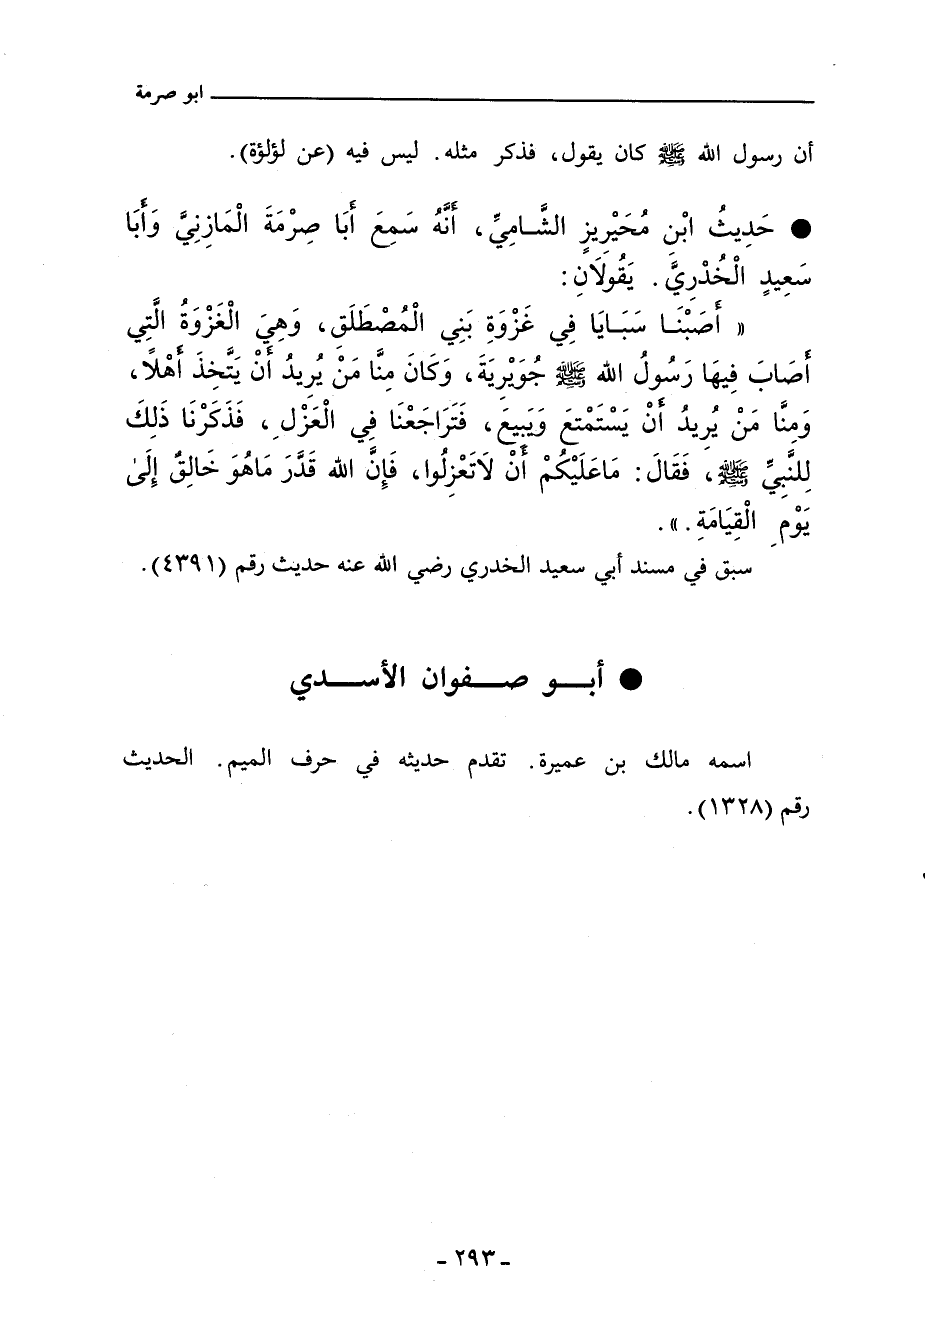 ابو صرمة
أن رسول الله ﷺ كان يقول، فذكر مثله. ليس فيه (عن لؤلؤة).
● حَدِيثُ ابْنِ مُحَيْرِيزٍ الشَّامِيِّ، أَنَّهُ سَمِعَ أَبَا صِرْمَةَ الْمَازِنِيَّ وَأَبَا
سَعِيدٍ الْخُدْرِيَّ. يَقُولَانِ:
« أَصَبْنَا سَبَايَا فِي غَزْوَةِ بَنِي الْمُصْطَلَقِ، وَهِيَ الْغَزْوَةُ الَّتِي
أَصَابَ فِيهَا رَسُولُ الله ﷺ جُوَيْرِيَةَ، وَكَانَ مِنَّا مَنْ يُرِيدُ أَنْ يَتَّخِذَ أَهْلًا،
وَمِنَّا مَنْ يُرِيدُ أَنْ يَسْتَمْتِعَ وَيَبِيعَ، فَتَرَاجَعْنَا فِي الْعَزْلِ، فَذَكَرْنَا ذَلِكَ
لِلنَّبِيِّ ﷺ، فَقَالَ: مَاعَلَيْكُمْ أَنْ لَاتَعْزِلُوا، فَإِنَّ الله قَدَّرَ مَاهُوَ خَالِقٌ إِلَىٰ
يَوْمِ الْقِيَامَةِ.».
سبق في مسند أبي سعيد الخدري رضي الله عنه حديث رقم (٤٣٩١).
● أبو صفوان الأسدي
اسمه مالك بن عميرة. تقدم حديثه في حرف الميم. الحديث
رقم (١٣٢٨).
- ٢٩٣ -